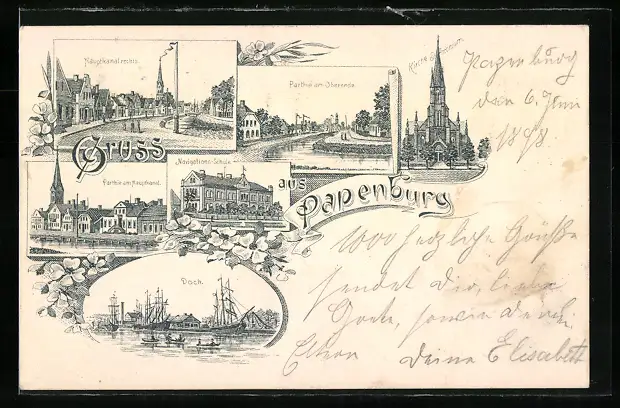 Hauptkanal rechts
Parthie am Obenende
Kirche
Gruss
Navigations-Schule
aus
Papenburg
Parthie am Hauptkanal.
Dock.
Papenburg
den 6. Juni
1898
1000 herzliche Grüße
sendet Dir, liebe
sowie deinen
Eltern Deine Elisabeth